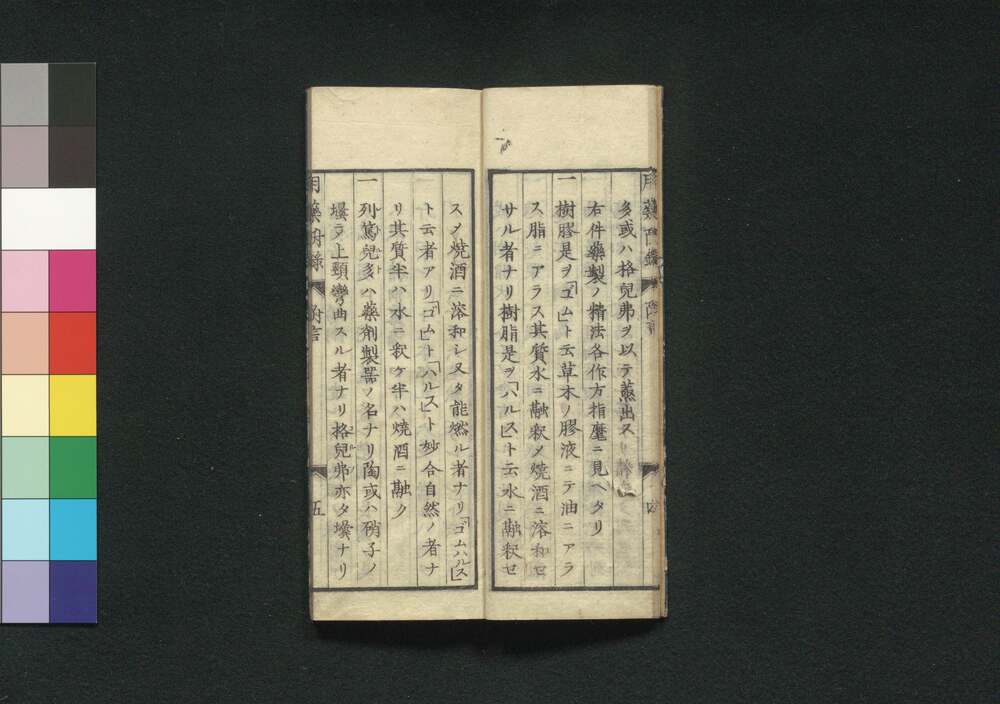 多或ハ格兒弗ヲ以テ蒸出ス
右件藥製ノ精法各作方指麾ニ見ヘタリ
一樹膠是ヲ「ゴム」ト云草木ノ膠液ニテ油ニアラ
ス脂ニアラス其質水ニ融釈メ焼酒ニ溶和セ
サル者ナリ樹脂是ヲ「ハルス」ト云水ニ融釈セ
四
スメ焼酒ニ溶和シ又タ能燃ル者ナリ「ゴムハルス」
ト云者アリ「ゴム」ト「ハルス」ト妙合自然ノ者ナ
リ其質半ハ水ニ釈ケ半ハ焼酒ニ融ク
一列篤兒多ハ藥剤製器ノ名ナリ陶或ハ硝子ノ
壜ラ上頸彎曲スル者ナリ格兒弗亦タ壜ナリ
五